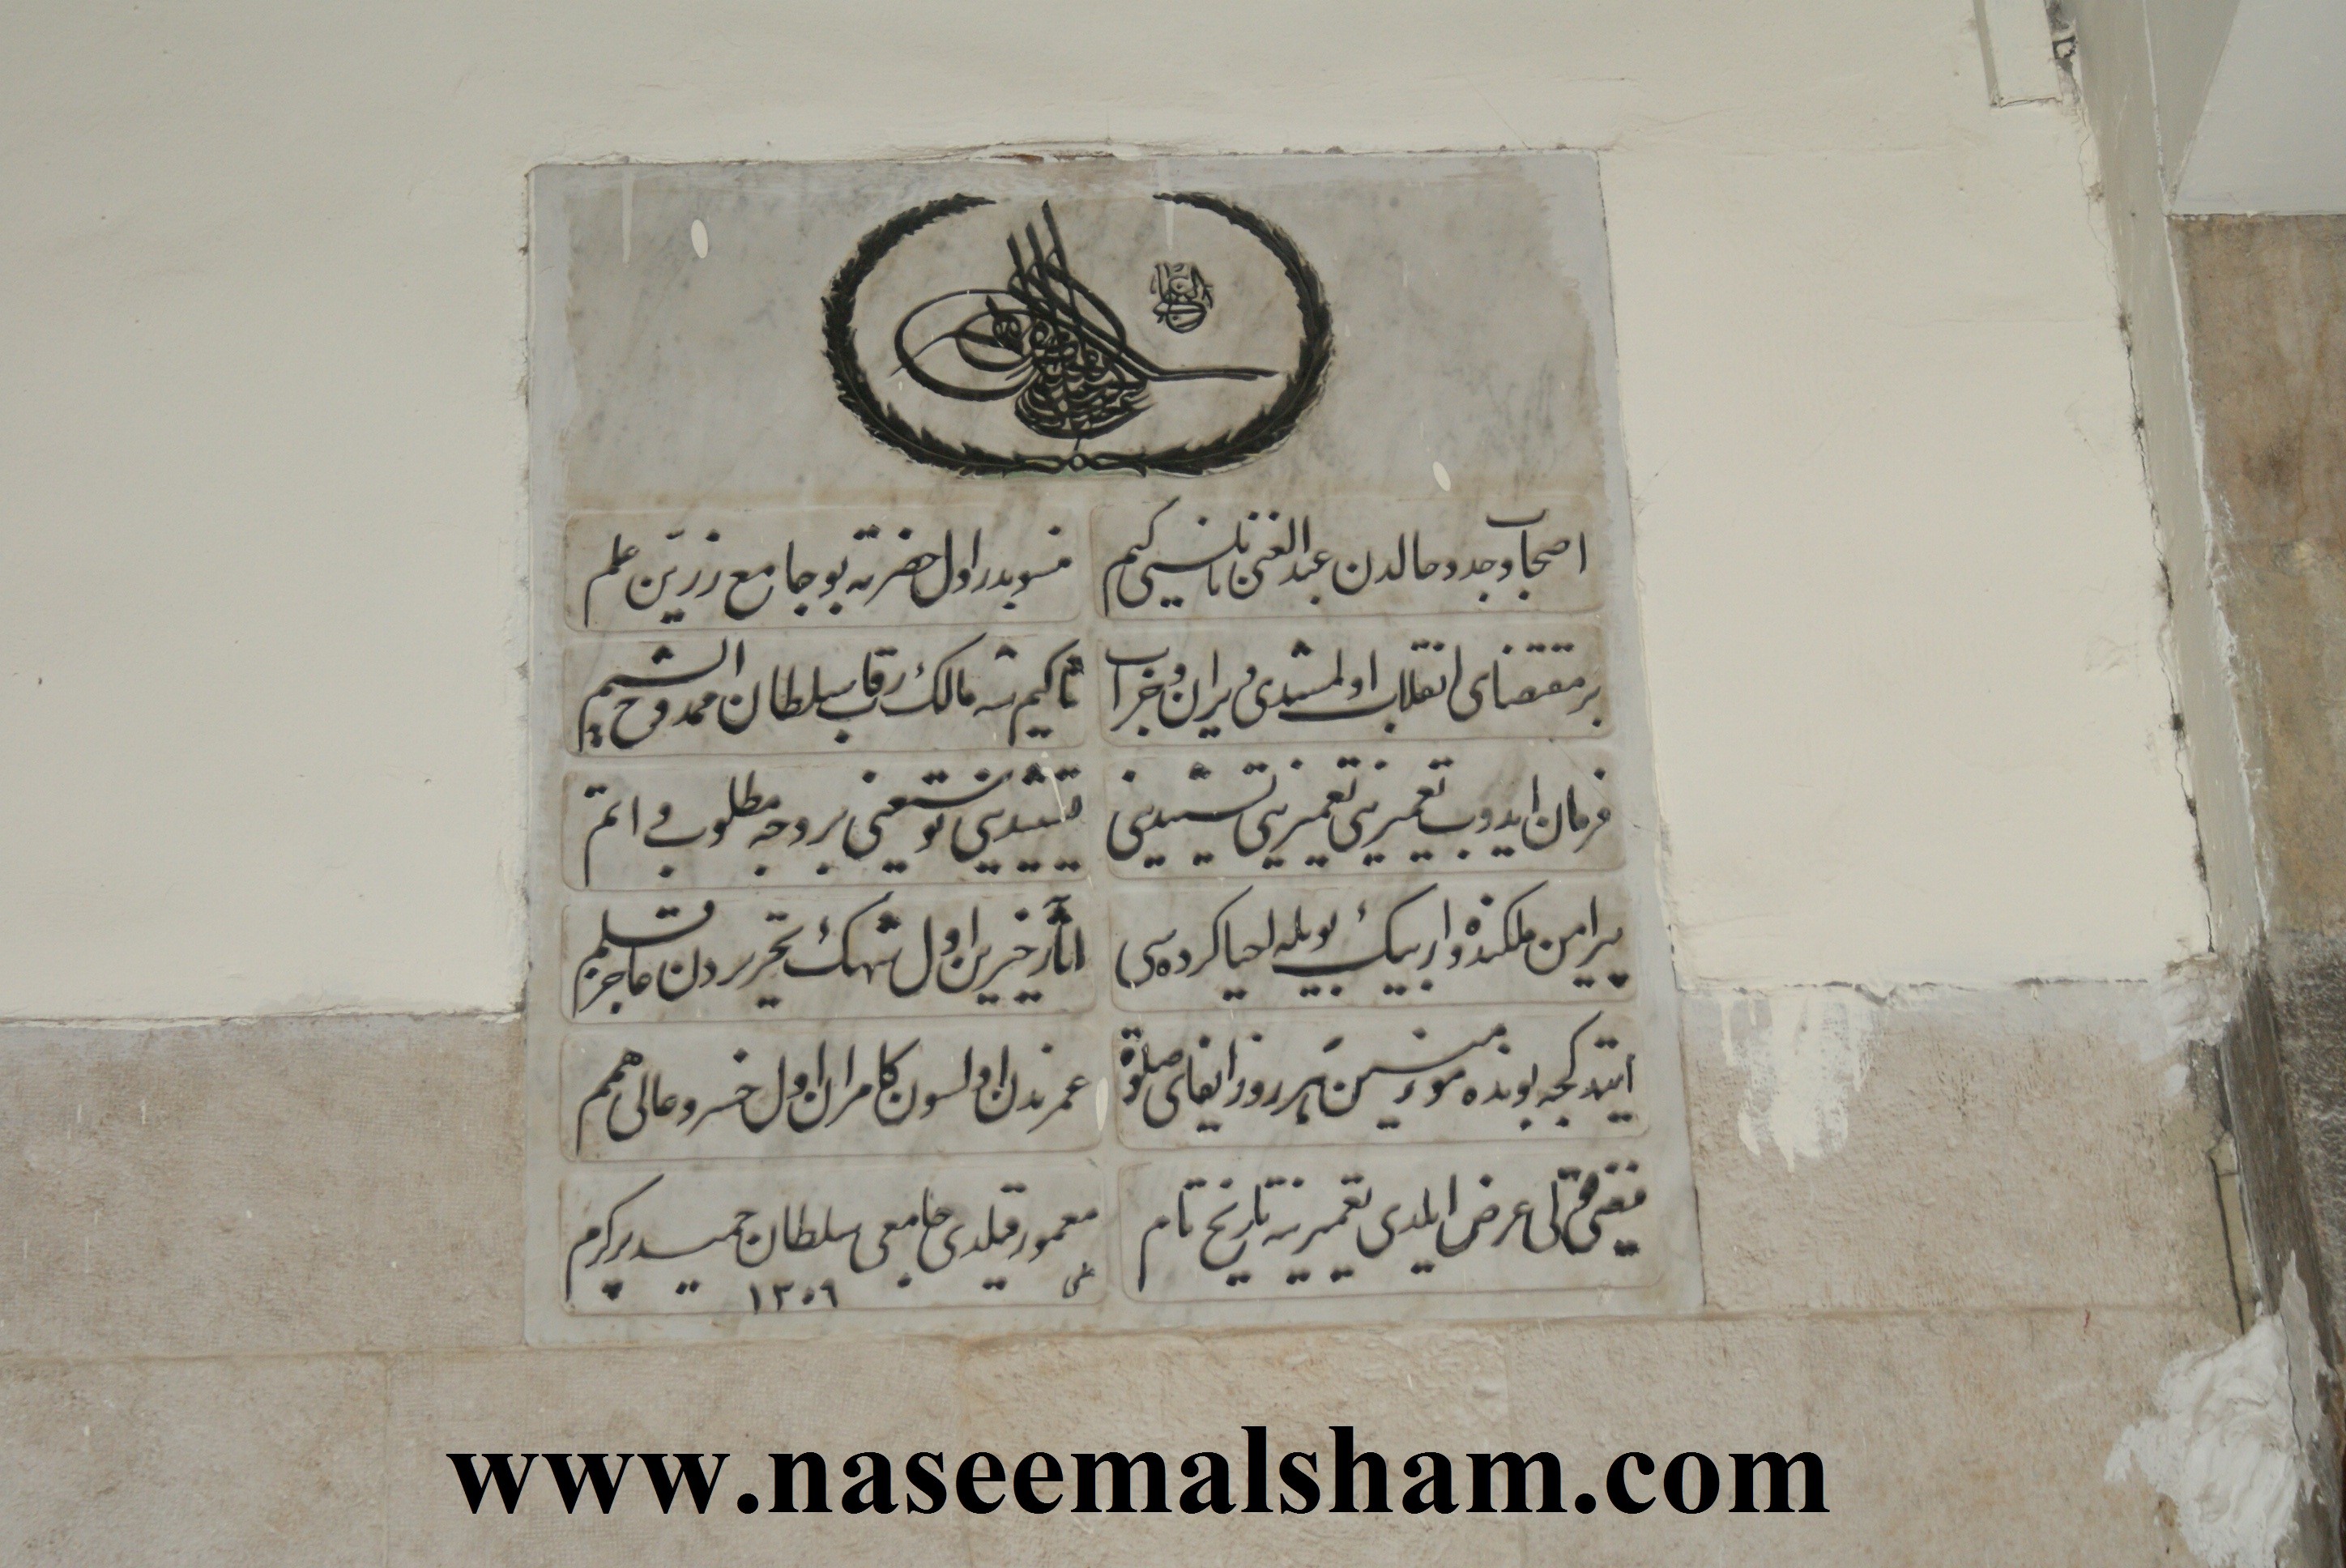 الغازی
اصحاب وجد و حالدن عبد الغنی نابلسی کیم
منسوبدر اول حضرته بو جامع زرین علم
بر مقتضای انقلاب اولمشیدی ویران و خراب
تا کیم شه مالك رقاب سلطان ممدوح الشیم
فرمان ایدوب تعمیرینی تعمیرینی تشییدینی
تشییدینی توسیعنی بر وجه مطلوب و اتم
پیرامن ملکنده وار بیك بویله احیا کرده سی
آثار خیرین اول شهك تحریردن عاجز قلم
ایتدکجه بونده مؤمنین هر روز ایفای صلوة
عمرندن اولسون کامران اول خسرو عالی همم
مفتی عرض ایلدی تعمیرینه تاریخ تام
معمور قیلدی جامعی سلطان حمید پر کرم
١٣٠٩
www.naseemalsham.com